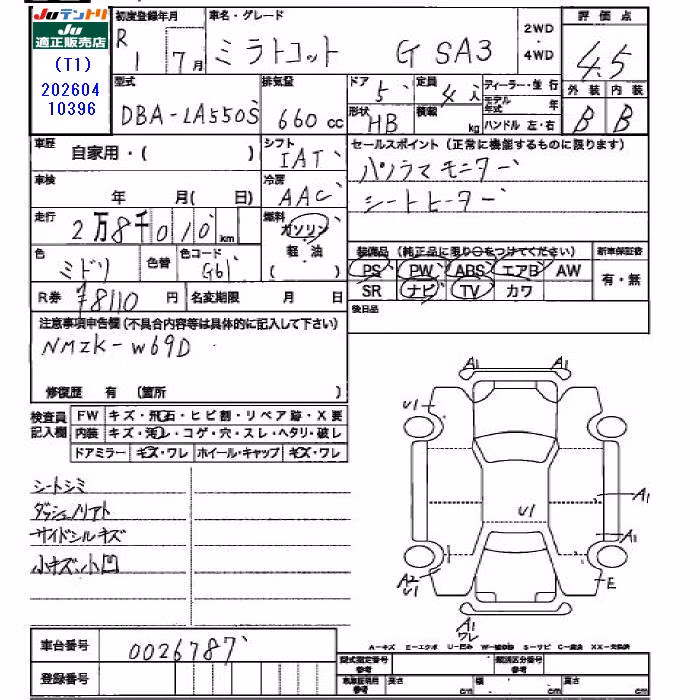 Juテントリ
Ju
適正販売店
(T1)
202604
10396
初度登録年月
R 1 7月
車名・グレード
ミラトコット G SA3
2WD・4WD
評価点
4.5
型式
DBA-LA550S
排気量
660 cc
ドア 5
定員 4人
ディーラー・並行
モデル年式 年
形状 HB
積載 kg
ハンドル 左・右
外装 内装
B B
車歴 自家用・( )
シフト IAT
セールスポイント (正常に機能するものに限ります)
パノラマモニター
シートヒーター
車検 年 月( 日)
冷房 AAC
走行 2万8千010 km
燃料 ガソリン
軽・油
( )
色 ミドリ
色替
色コード G61
装備品 (純正品に限り○をつけてください)
新車保証書
PS PW ABS エアB AW
有・無
SR ナビ TV カワ
R券 ¥8110 円
名変期限 月 日
後日品
注意事項申告欄 (不具合内容等は具体的に記入して下さい)
NMZK-W69D
修復歴 有 (箇所 )
検査員記入欄
FW キズ・飛石・ヒビ割・リペア跡・X要
内装 キズ・汚レ・コゲ・穴・スレ・ヘタリ・破レ
ドアミラー キズ・ワレ ホイール・キャップ キズ・ワレ
シートシミ
ダッシュノリアト
サイドシルキズ
小キズ小凹
A1 A1
U1
U1
A1
A1
A2
U1
E
A1
ワレ
車台番号 0026787
登録番号
A-キズ E-エクボ U-凹み W-補修跡 S-サビ C-腐食 XX-交換済
型式指定番号 参考
類別区分番号 参考
車庫証明用 参考
長さ cm 幅 cm 高さ cm